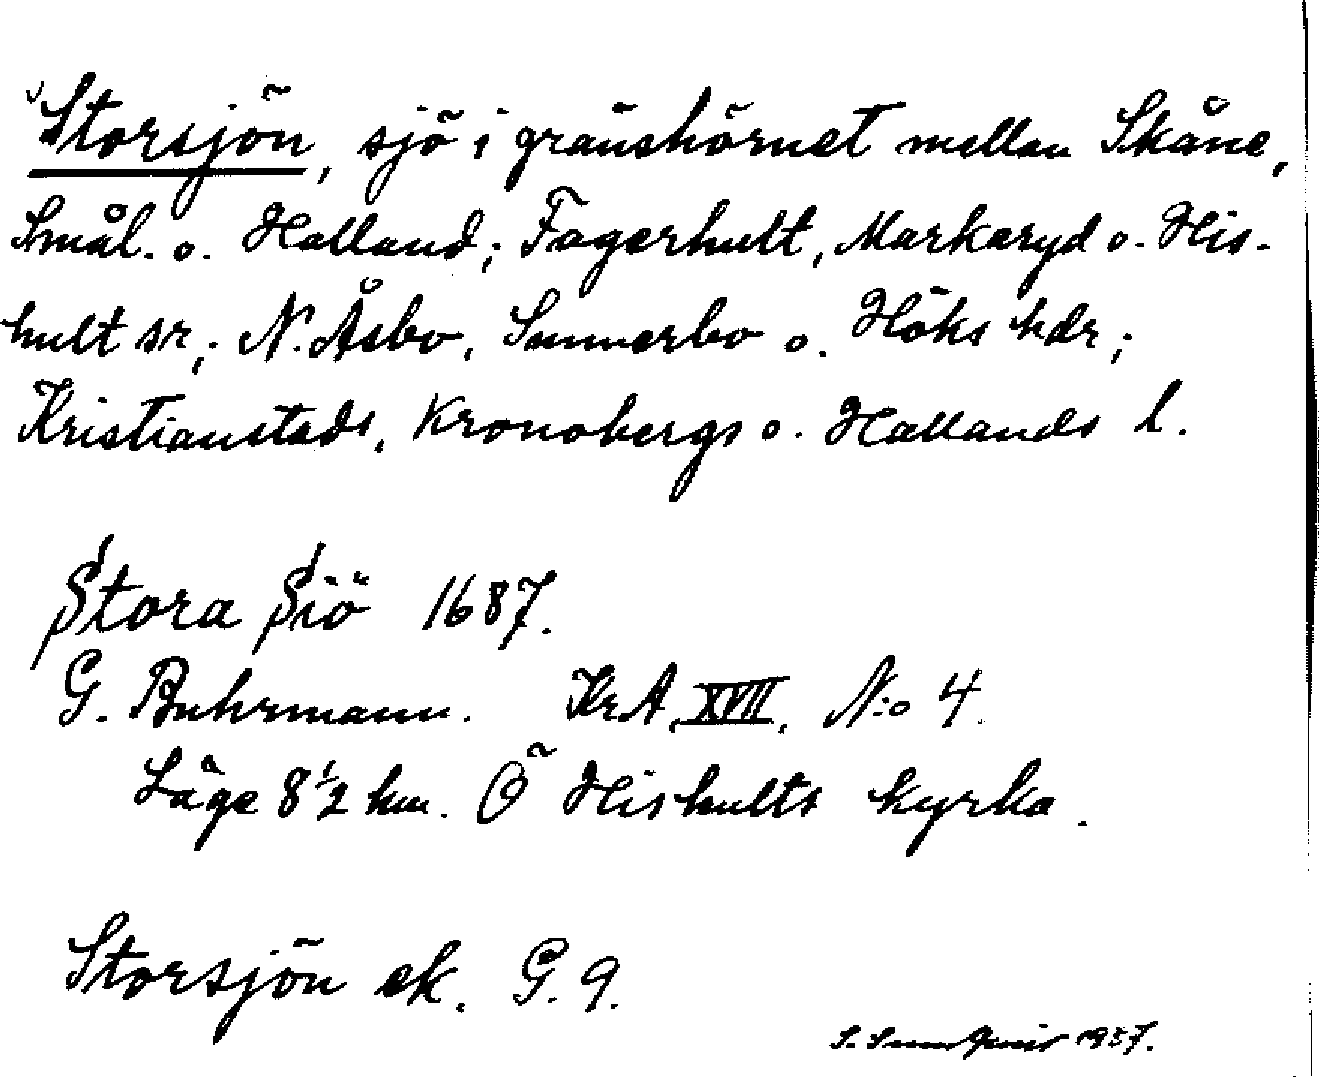 Storsjön, sjö i gränshörnet mellan Skåne,
Smål. o. Halland; Fagerhult, Markaryd o. His-
hult sr; N. Åsbo, Sunnerbo o. Höks hdr;
Kristianstads, Kronobergs o. Hallands l.
Stora Siö 1687.
G. Buhrmann. KrA XVII. N:o 4.
Läge 8 1/2 km. Ö Hishults kyrka.
Storsjön ek. G. 9.
S. 1957.